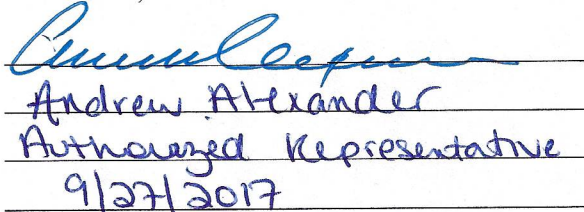 Andrew Alexander
Authorized Representative
9/27/2017